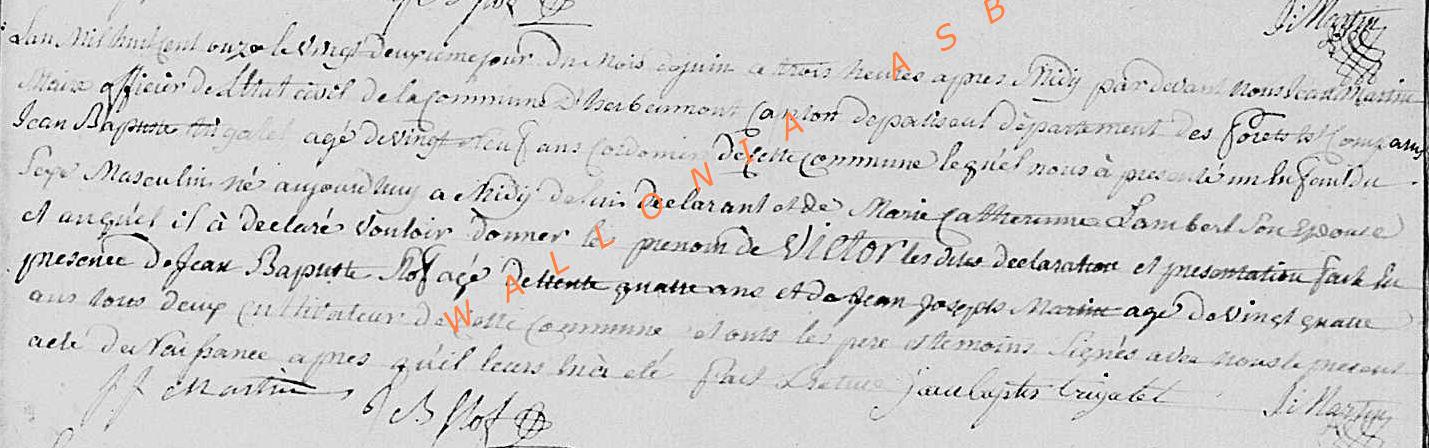 Ji Martin
Lan Mil huit cent onze le vingt deuxieme jour du Mois de juin a trois heures apres Midy par devant nous Jean Martin
Maire officier de L'Etat civil de la Commune d'herbeumont Canton de paliseul département des forets est Comparus
Jean Baptiste trigalet agé de vingt neuf ans Cordonnier de cette Commune lequél nous à presenté un Enfant du
Sexe Masculin né aujourdhuy a Midy de lui declarant et de Marie Catherinne Lambert Son Epouse
et auquél il à declaré vouloir donner le prenom de Victor les dites declaration et presentation fait En
presence de Jean Baptiste Slof agé de trente quattre ans et de Jean Joseph Martin agé de vingt quatre
ans tous deux Cultivateur de cette Commune et onts les pere et temoins Signés avec nous le present
acte de Naissance apres qu'il leurs à été fait Lecture jean baptis trigalet Ji Martin
JJ Martin JB Slof
WALLONIA ASB